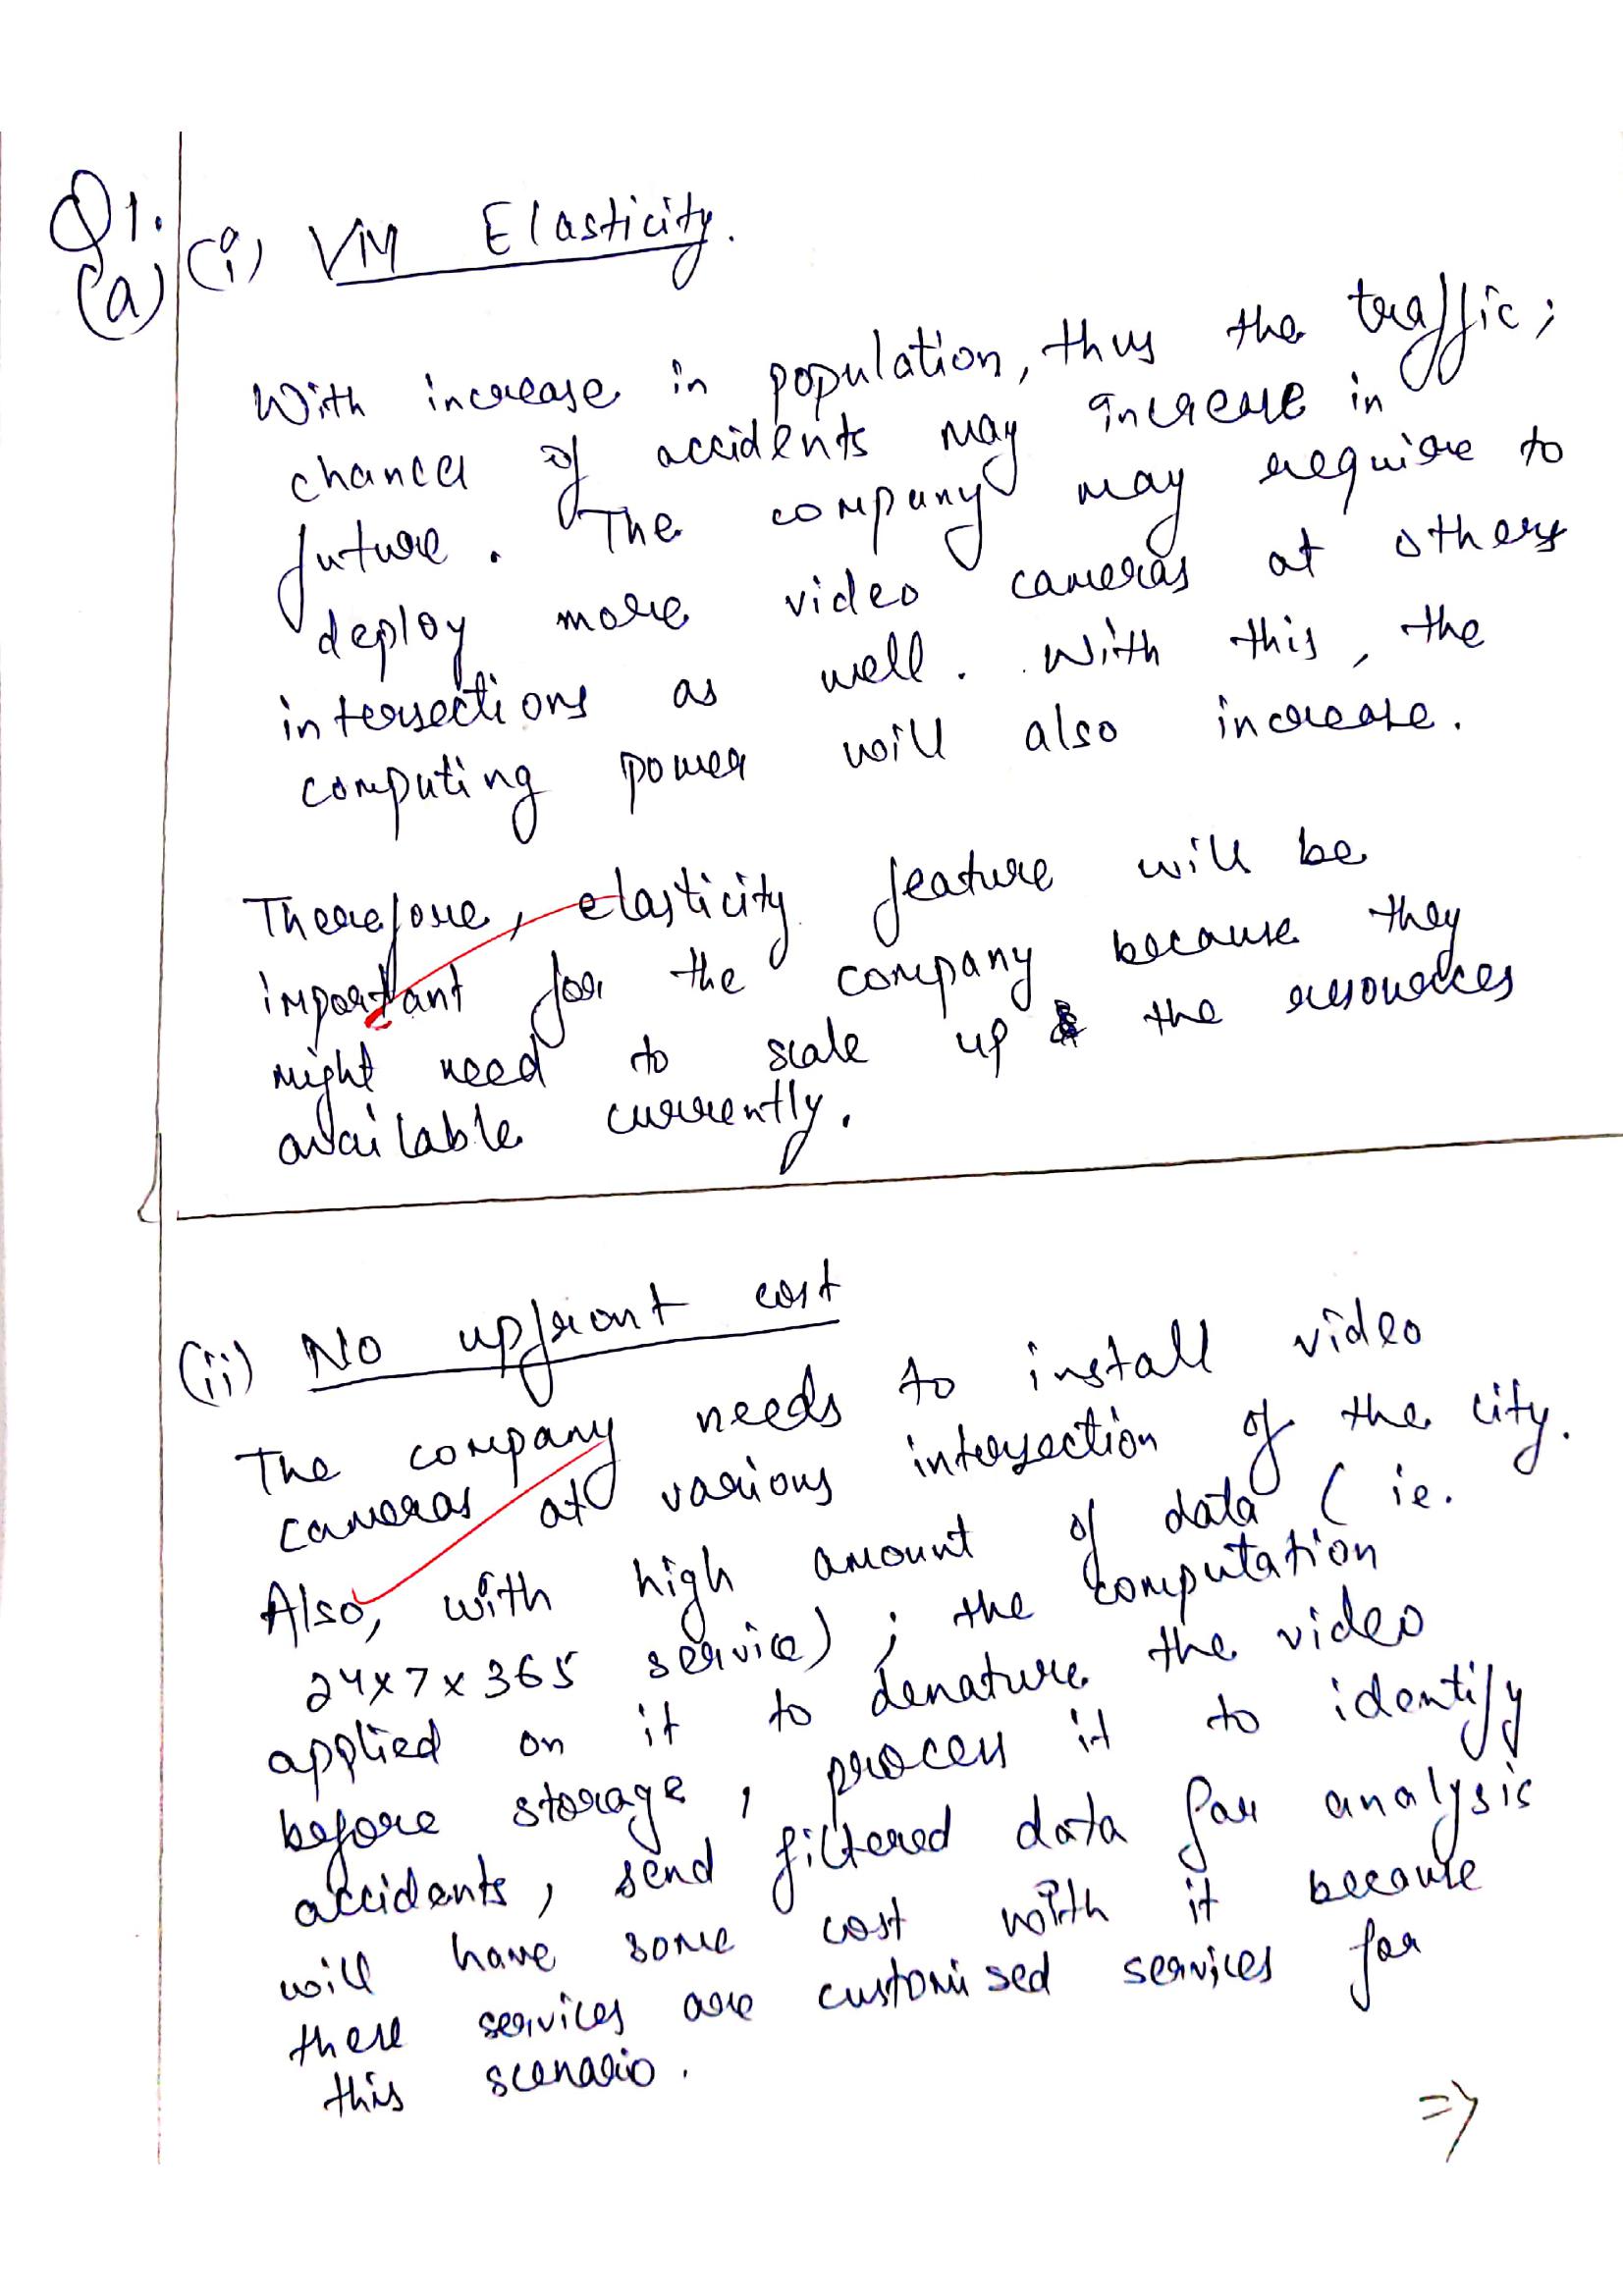 Q1.
(a) (i) VM Elasticity.
With increase in population, thus the traffic;
chances of accidents may increase in
future. The company may require to
deploy more video cameras at others
intersections as well. With this, the
computing power will also increase.
Therefore, elasticity feature will be
important for the company because they
might need to scale up the resources
available currently.
(ii) No upfront cost
The company needs to install video
cameras at various intersection of the city.
Also, with high amount of data (ie.
24x7x365 service) ; the computation
applied on it to denature the video
before storage, process it to identify
accidents, send filtered data for analysis
will have some cost with it because
these services are customised services for
this scenario.
=>